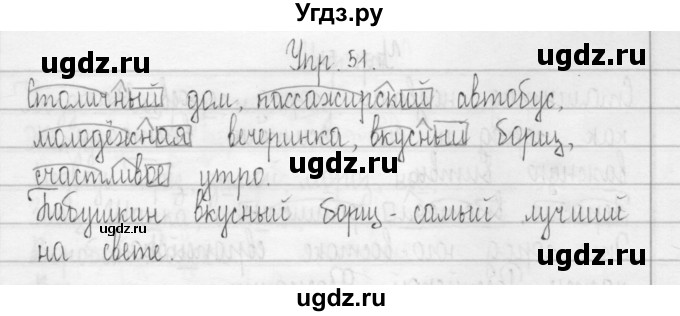 Угдз.ру
Упр. 51.
Столичный дом, пассажирский автобус,
молодёжная вечеринка, вкусный борщ,
счастливое утро.
Бабушкин вкусный борщ - самый лучший
на свете.
ugdz.ru
ugdz.ru
ugdz.ru
ugdz.ru
ugdz.ru
ugdz.ru
ugdz.ru
ugdz.ru
ugdz.ru
ugdz.ru